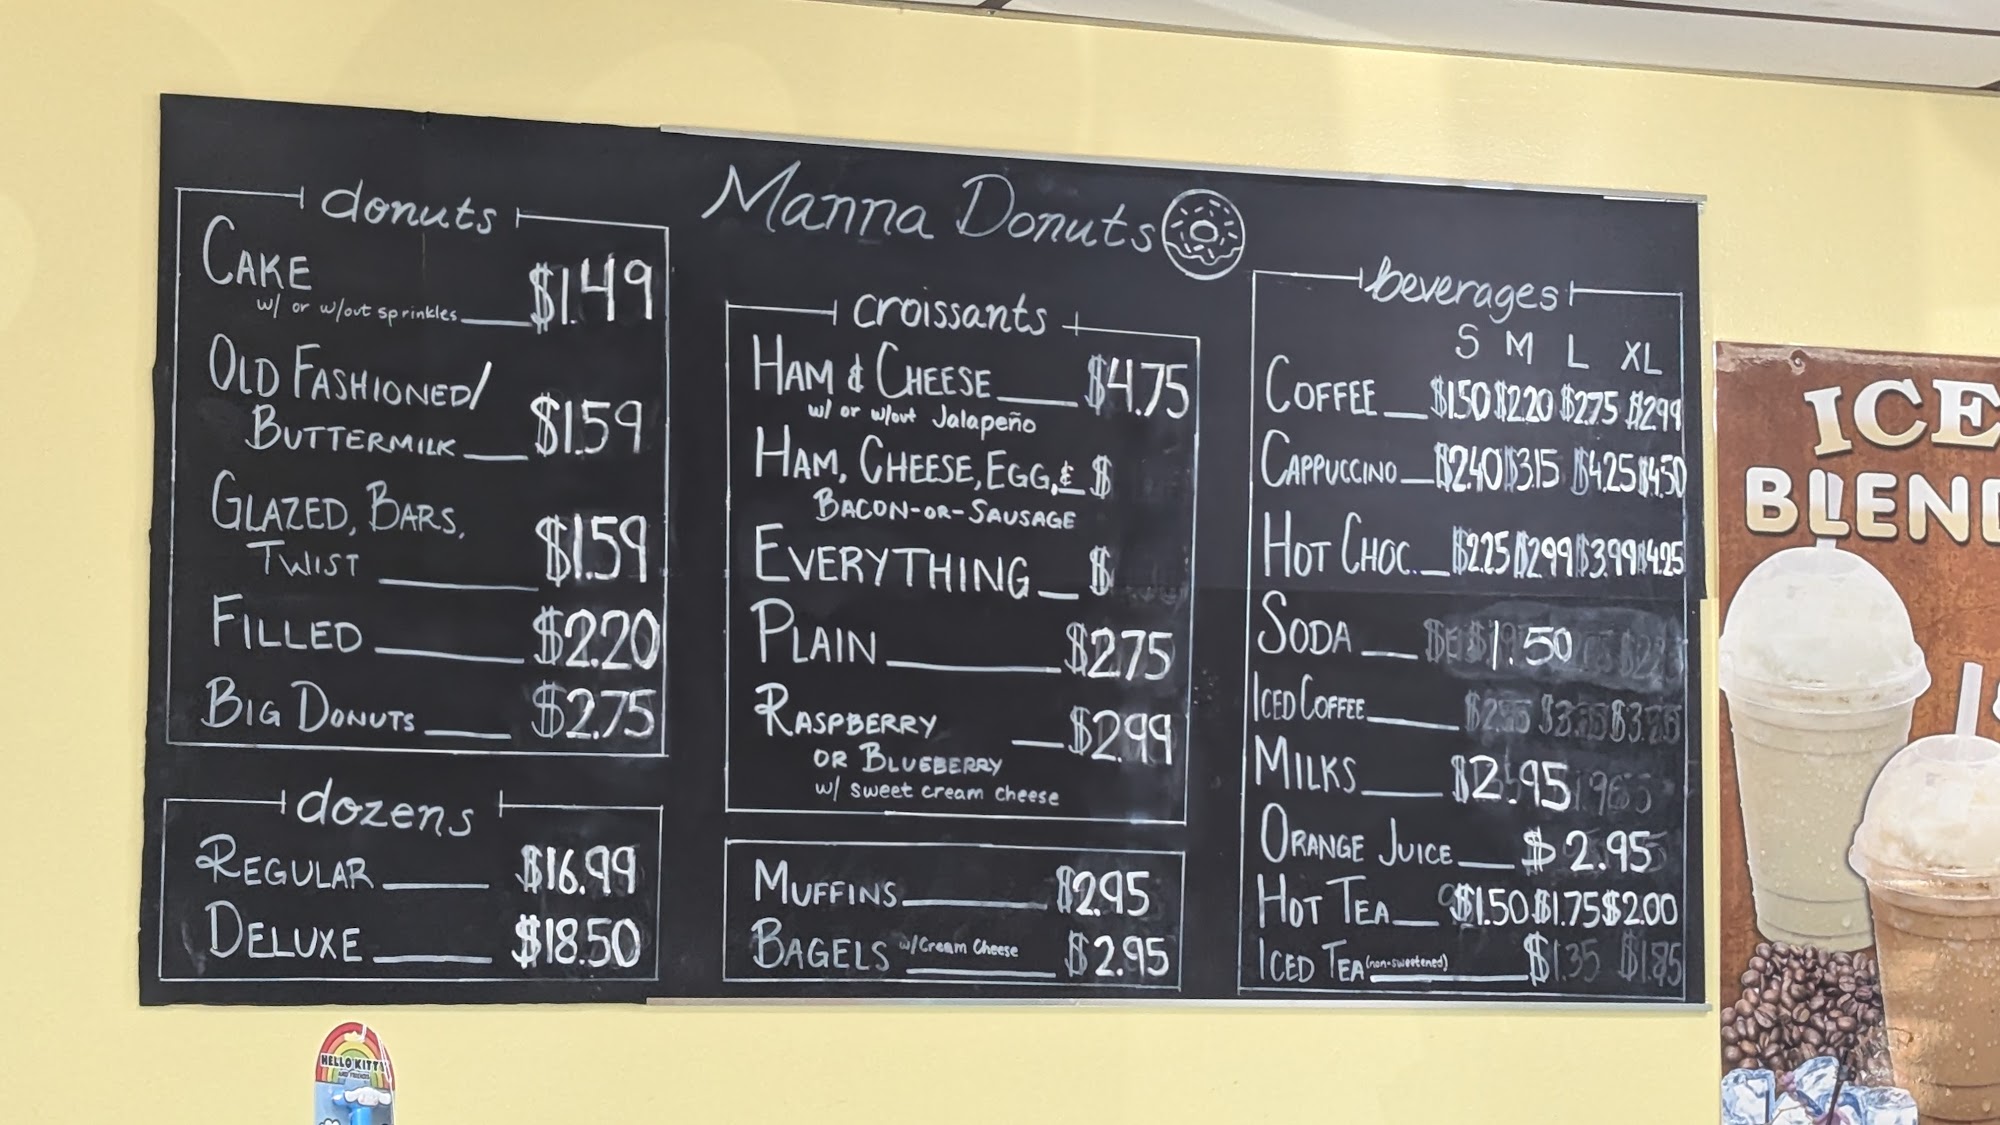 Manna Donuts
donuts
CAKE
w/ or w/out sprinkles $1.49
OLD FASHIONED/
BUTTERMILK $1.59
GLAZED, BARS,
TWIST $1.59
FILLED $2.20
BIG DONUTS $2.75
dozens
REGULAR $16.99
DELUXE $18.50
croissants
HAM & CHEESE $4.75
w/ or w/out Jalapeño
HAM, CHEESE, EGG, & $
BACON-OR-SAUSAGE
EVERYTHING $
PLAIN $2.75
RASPBERRY $2.99
OR BLUEBERRY
w/ sweet cream cheese
MUFFINS $2.95
BAGELS w/Cream Cheese $2.95
beverages
S M L XL
COFFEE $1.50 $2.20 $2.75 $2.99
CAPPUCCINO $2.40 $3.15 $4.25 $4.50
HOT CHOC. $2.25 $2.99 $3.99 $4.25
SODA 1.50
ICED COFFEE
MILKS $2.95
ORANGE JUICE $2.95
HOT TEA $1.50 $1.75 $2.00
ICED TEA (non-sweetened) $1.35 $1.85
ICE
BLEND
HELLO KITTY
AND FRIENDS